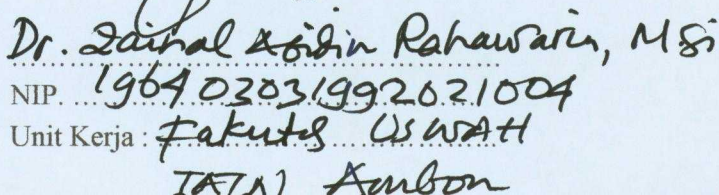 Dr. Zainal Abidin Rahawarin, MSi
NIP. 196403031992021004
Unit Kerja : Fakultas USWAH
IAIN Ambon